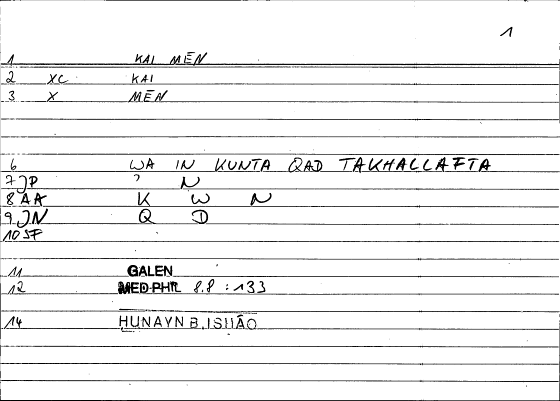 1
1 KAI MĒN
2 XC KAI
3 X MĒN
6 WA IN KUNTA QAD TAKHALLAFTA
7 JP ʾ N
8 AA K W N
9 JN Q D
10 SF
11 GALEN
12 MED PHIL 8.8 : 133
14 HUNAYN B. ISHĀQ